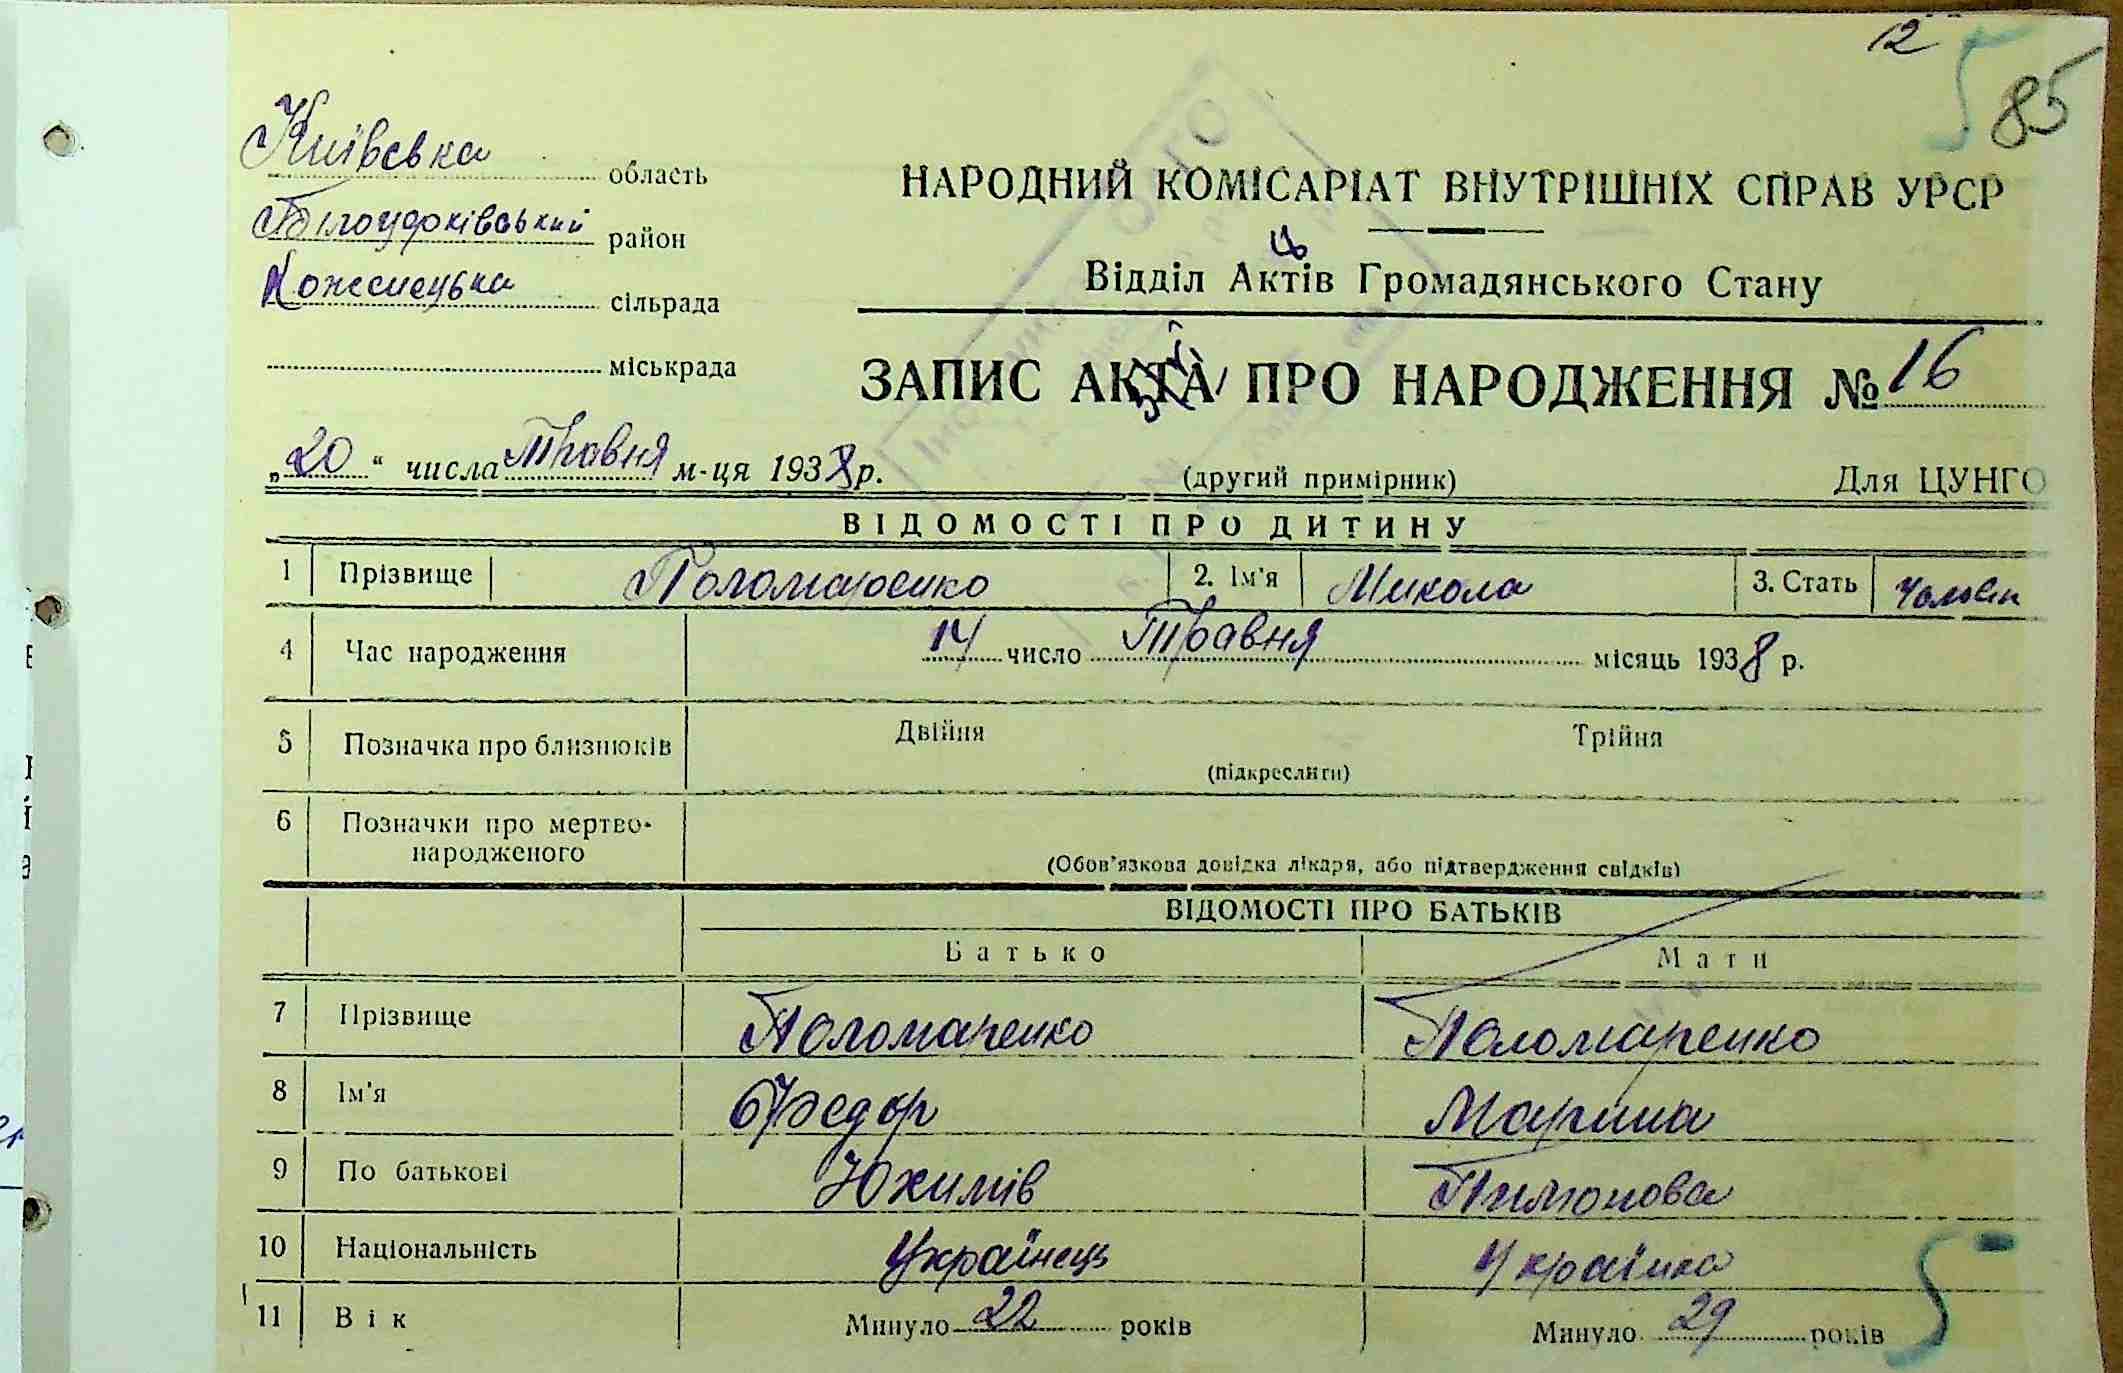 12
5
85
Київська область
Білоцерківський район
сільрада
міськрада
НАРОДНИЙ КОМІСАРІАТ ВНУТРІШНІХ СПРАВ УРСР
Відділ Актів Громадянського Стану
ЗАПИС АКТА ПРО НАРОДЖЕННЯ № 16
„20“ числа Травня м-ця 1938 р.
(другий примірник)
Для ЦУНГО
ВІДОМОСТІ ПРО ДИТИНУ
1 Прізвище Поломаренко 2. Ім'я Микола 3. Стать
4 Час народження 14 число Травня місяць 1938 р.
5 Позначка про близнюків Двійня Трійня
(підкреслити)
6 Позначки про мертво-
народженого
(Обов'язкова довідка лікаря, або підтвердження свідків)
ВІДОМОСТІ ПРО БАТЬКІВ
Батько Мати
7 Прізвище Поломаренко Поломаренко
8 Ім'я Федор Марина
9 По батькові Юхимів Пимонова
10 Національність Українець Українка
11 Вік Минуло 22 років Минуло 29 років
5